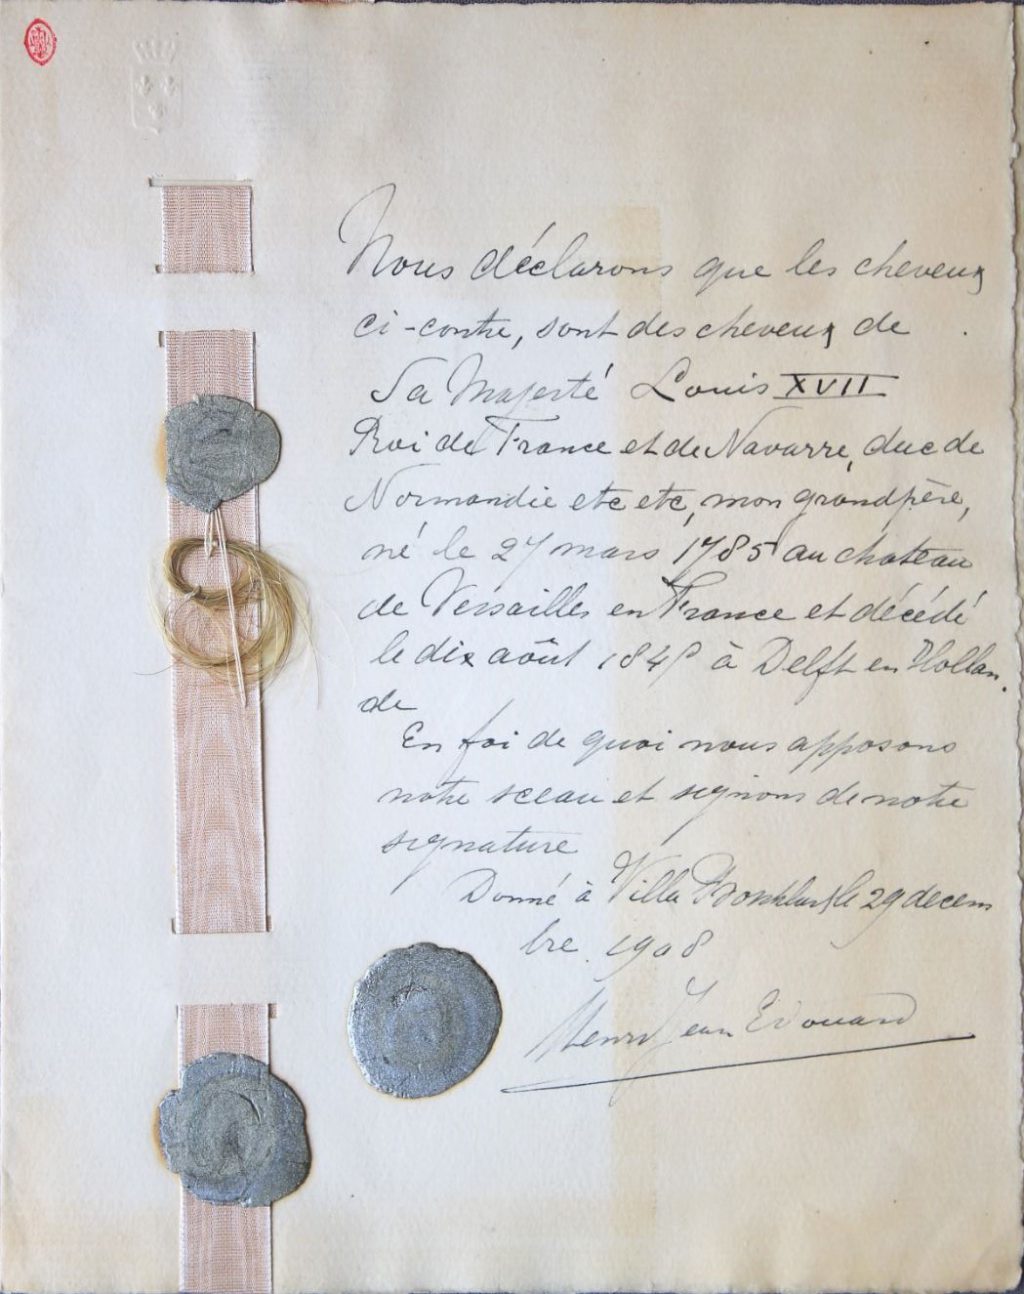 Nous déclarons que les cheveux
ci-contre, sont des cheveux de
Sa Majesté Louis XVII
Roi de France et de Navarre, duc de
Normandie etc etc, mon grandpère,
né le 27 mars 1785 au chateau
de Versailles en France et décédé
le dix août 1845 à Delft en Hollan.
de
En foi de quoi nous apposons
notre sceau et signons de notre
signature
Donné à Villa le 29 decem
bre. 1908
Henri Jean Edouard